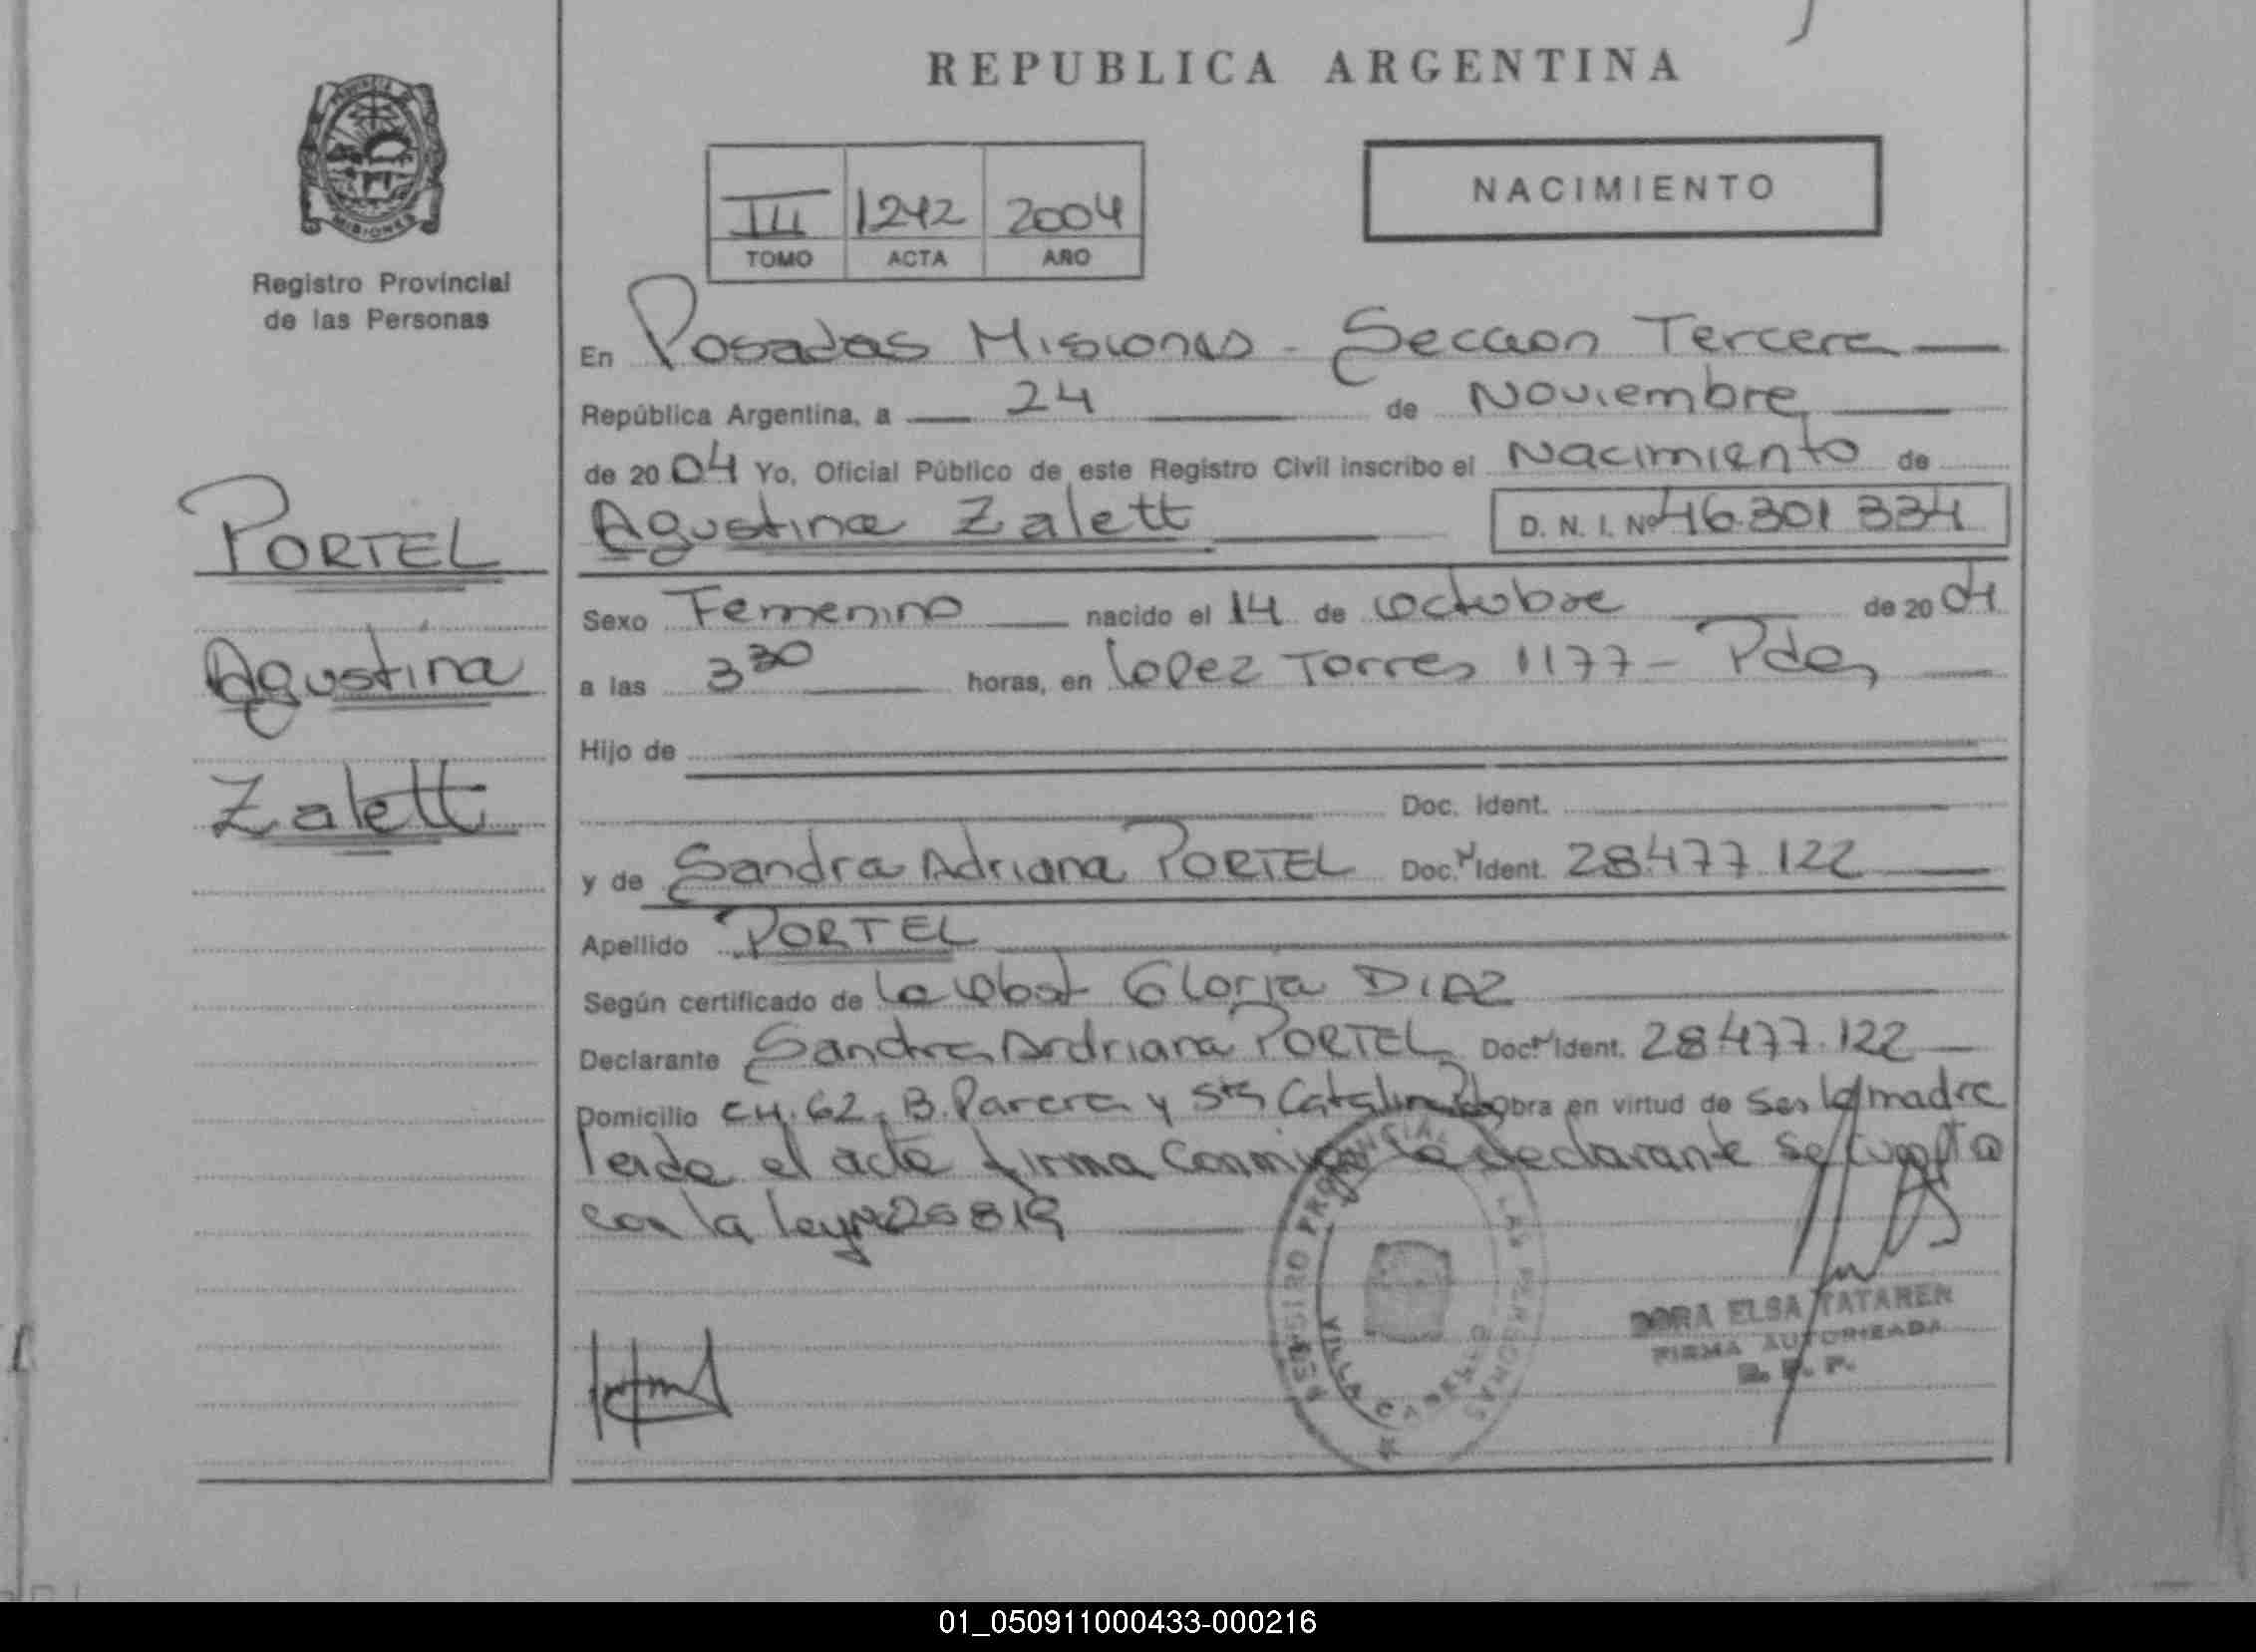 REPUBLICA ARGENTINA
PROVINCIA DE
MISIONES
Registro Provincial
de las Personas
III 1242 2004
TOMO ACTA AÑO
NACIMIENTO
En Posadas Misiones - Seccion Tercera
República Argentina, a 24 de Noviembre
de 2004 Yo, Oficial Público de este Registro Civil inscribo el Nacimiento de
Agustina Zalett D. N. I. Nº 46.301 334
PORTEL
Agustina
Zalett
Sexo Femenino nacido el 14 de octubre de 2004
a las 3 30 horas, en Lopez Torres 1177 - Pdas
Hijo de
Doc. Ident.
y de Sandra Adriana PORTEL Doc. Nº Ident. 28.477.122
Apellido PORTEL
Según certificado de la Obst Gloria DIAZ
Declarante Sandra Ardriana PORTEL Doc. Nº Ident. 28.477.122
Domicilio CH. 62, B. Parera y Sta Catalina obra en virtud de ser la madre
leida el acta firma conmigo la declarante se cumplio
con la ley Nº 25819
REGISTRO PROVINCIAL DE LAS PERSONAS
VILLA CABELLO
DORA ELSA TATAREN
FIRMA AUTORIZADA
R. P. P.
01_050911000433-000216